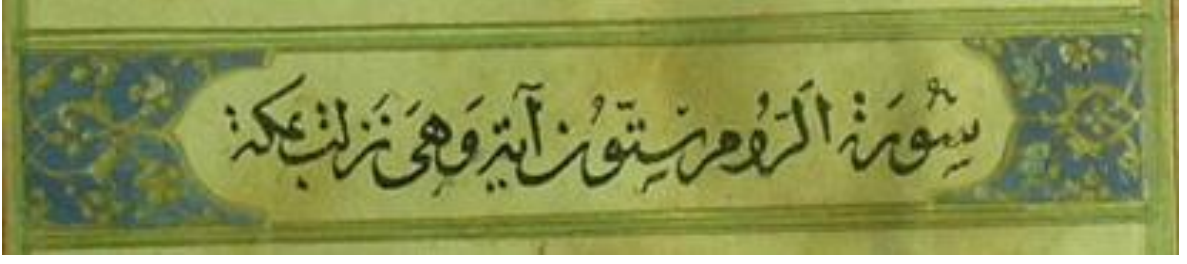 سُورَة الرُّوم سِتّوُن آية وَهىَ نَزلت بمكة